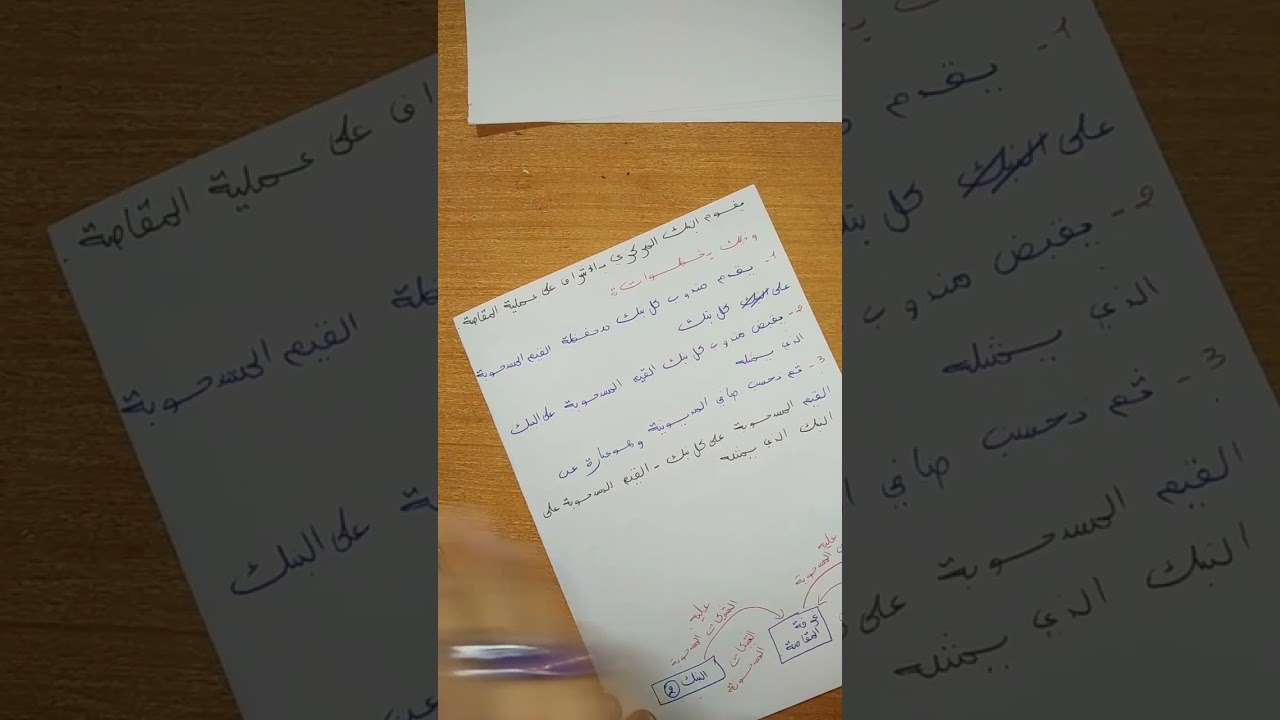 يقوم البنك المركزي بالاشراف على عملية المقاصة.
وذلك بخطوات:
1- يقدم مندوب كل بنك محفظة القيم المسحوبة
على كل بنك
2- يقبض مندوب كل بنك القيم المسحوبة على البنك
الذي يمثله
3- ثم نحسب صافي المديونية وهو عبارة عن
القيم المسحوبة على كل بنك - القيم المسحوبة على
البنك الذي يمثله
عليه
المسحوبة
عليه
الشيكات المسحوبة
غرفة
المقاصة
الشيكات
المسحوبة
البنك 2